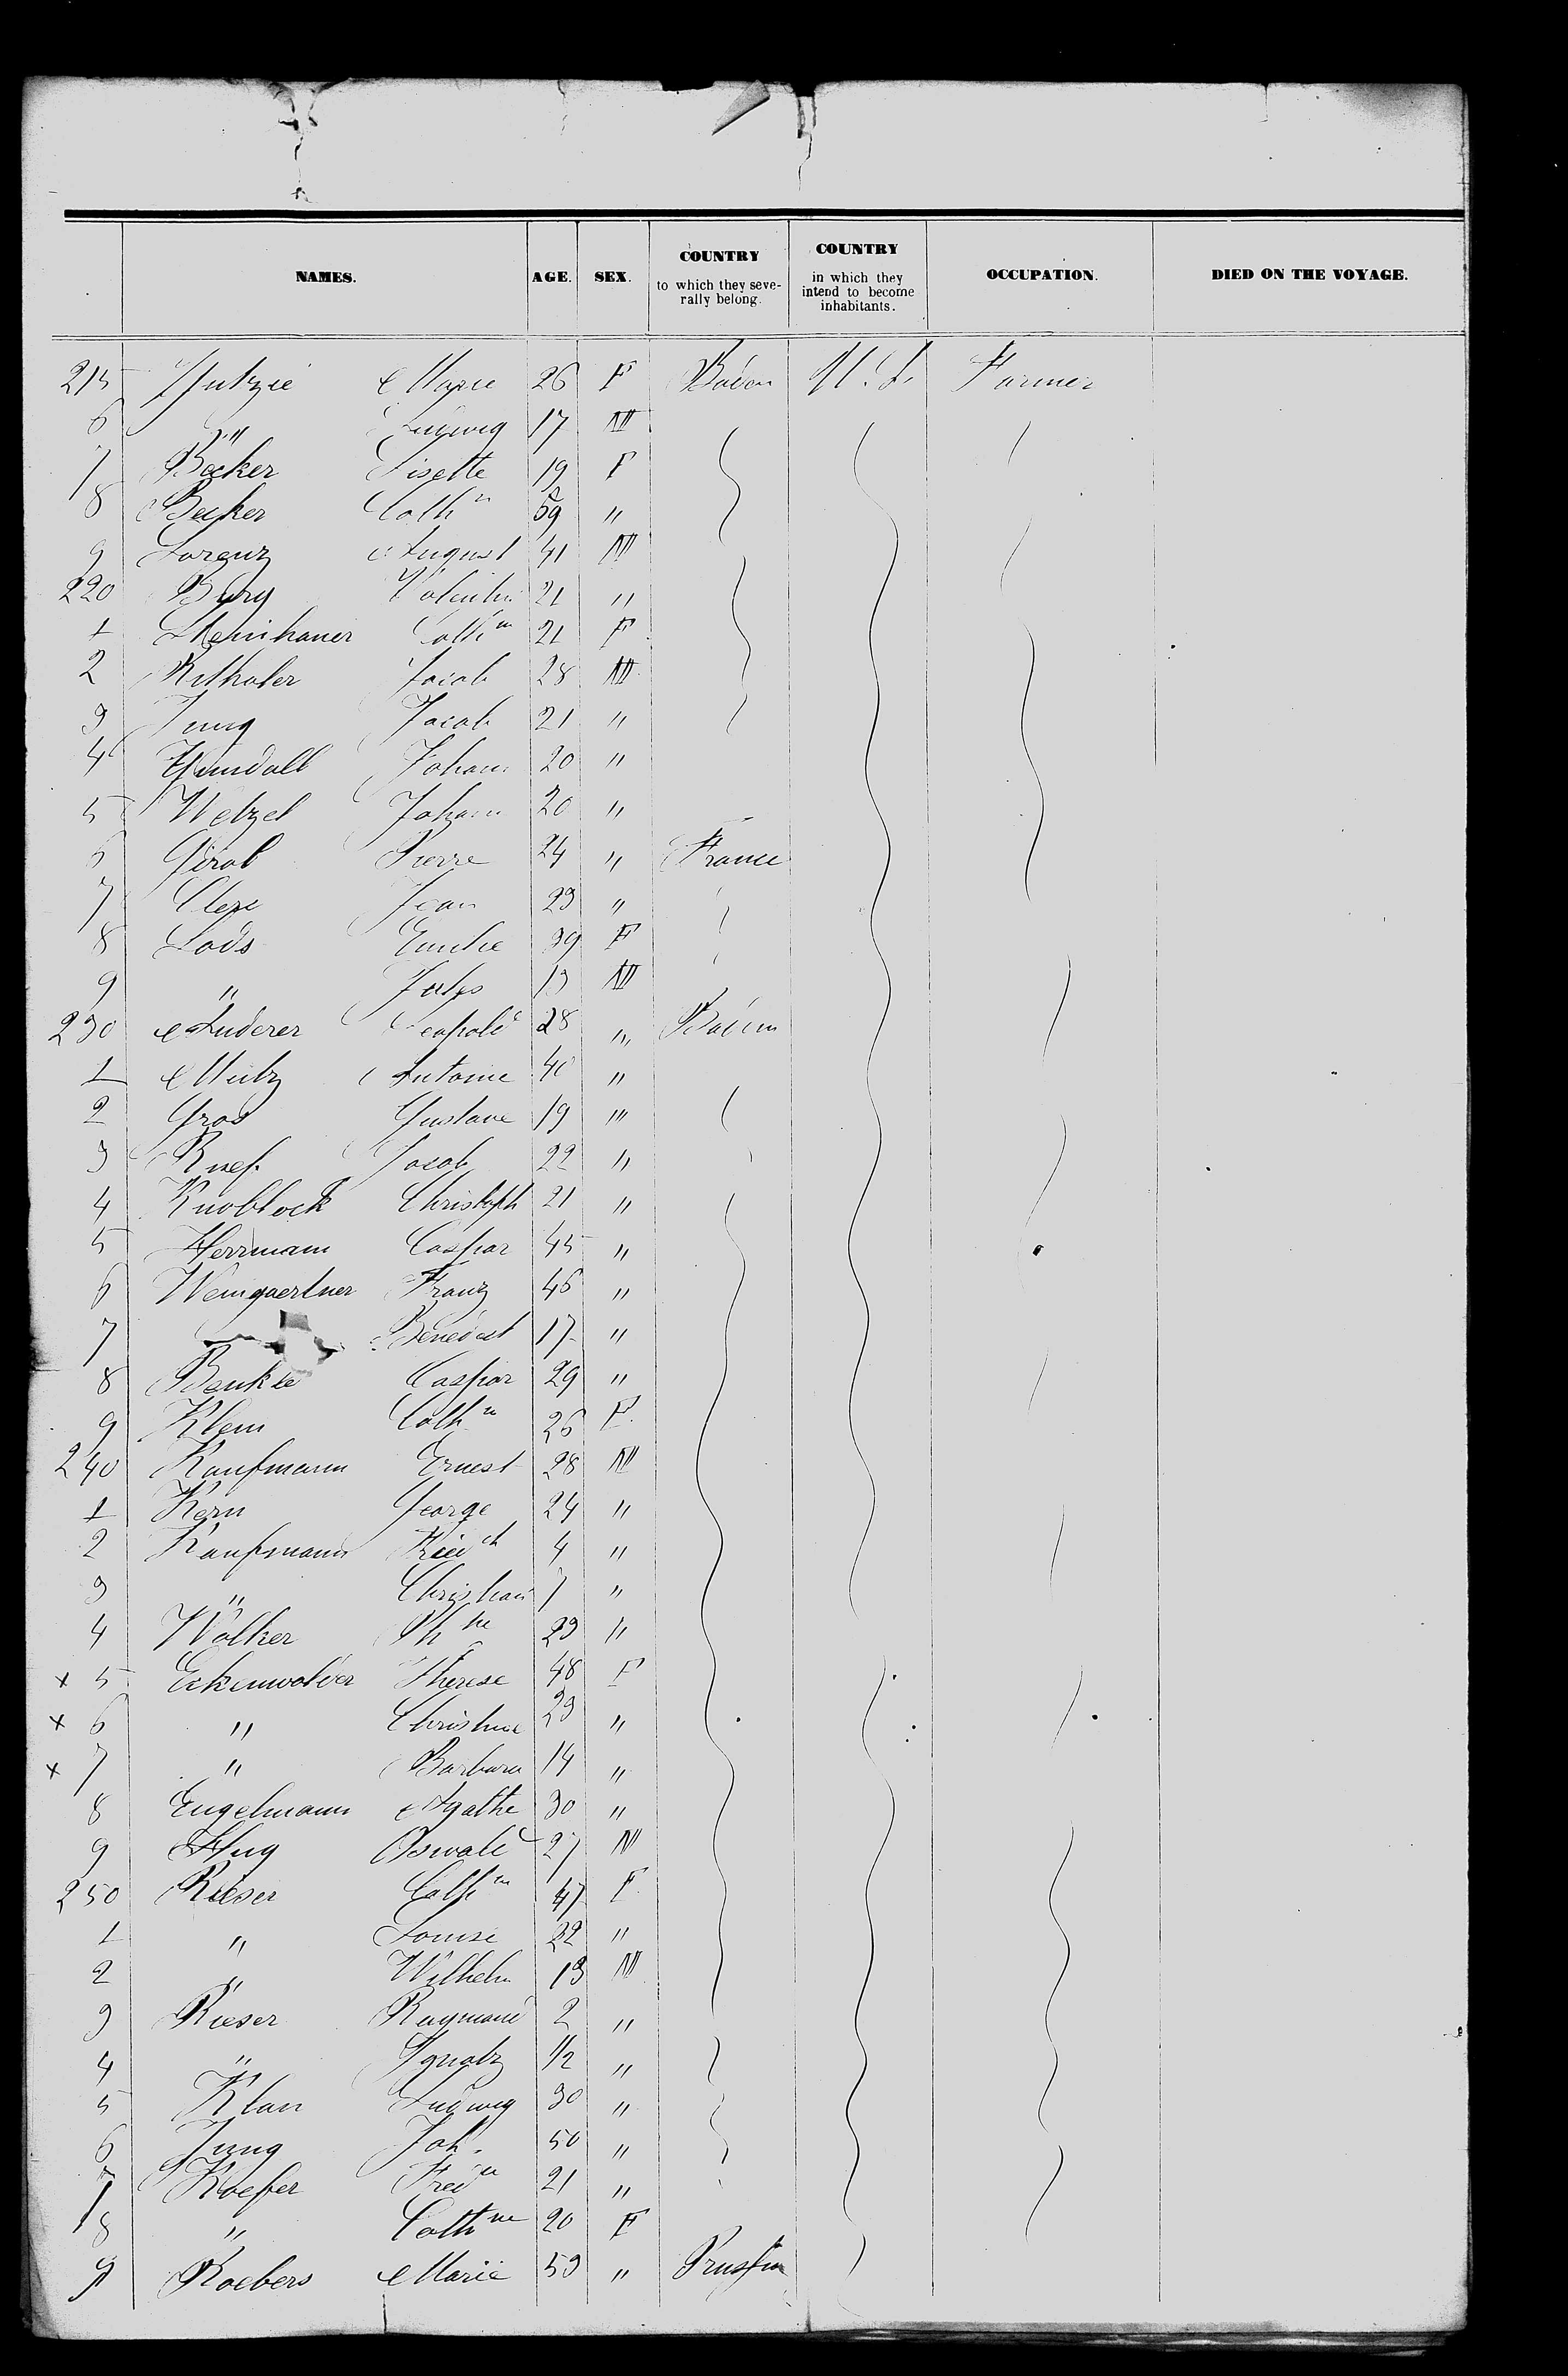 NAMES. AGE. SEX. COUNTRY to which they seve- rally belong. COUNTRY in which they intend to become inhabitants. OCCUPATION. DIED ON THE VOYAGE.
215 Marie 26 F Baden U.S. Farmer
6 " Ludwig 17 M
7 Becker Lisette 19 F
8 Becker Cathn 59 "
9 Lorenz August 41 M
220 Burg Valentin 21 "
1 Steinhauer Cathne 21 F
2 Rethaler Jacob 28 M
3 Jung Jacob 21 "
4 Johann 20 "
5 Wetzel Johann 20 "
6 Girol Pierre 24 " France
7 Clerc Jean 23 "
8 Lods Emilie 39 F
9 " Jules 13 M
230 Anderer Leopold 28 " Baden
1 Metz Antoine 40 "
2 Gros Gustave 19 "
3 Ruef Jacob 22 "
4 Knoblock Christoph 21 "
5 Herrmann Caspar 45 "
6 Weingaertner Franz 46 "
7 Benedict 17 "
8 Benkle Caspar 29 "
9 Klein Cathn 26 F
240 Kaufmann Ernest 28 M
1 Kern George 24 "
2 Kaufmann Friedch 4 "
3 " Christian 7 "
4 Walker 23 "
x 5 Eckenwalder Therese 48 F
x 6 " Christine 23 "
x 7 " Barbara 14 "
8 Engelmann Agathe 30 "
9 Hug Oswald 27 M
250 Rieser Cathn 47 F
1 " Louise 22 "
2 " Wilhelm 13 M
3 Rieser Raymond 2 "
4 " Ignatz 1/2 "
5 Klan Ludwig 30 "
6 Jung Joh. 50 "
7 Koefer Fred 21 "
8 " Cathne 20 F
9 Roebers Marie 53 " Prussia